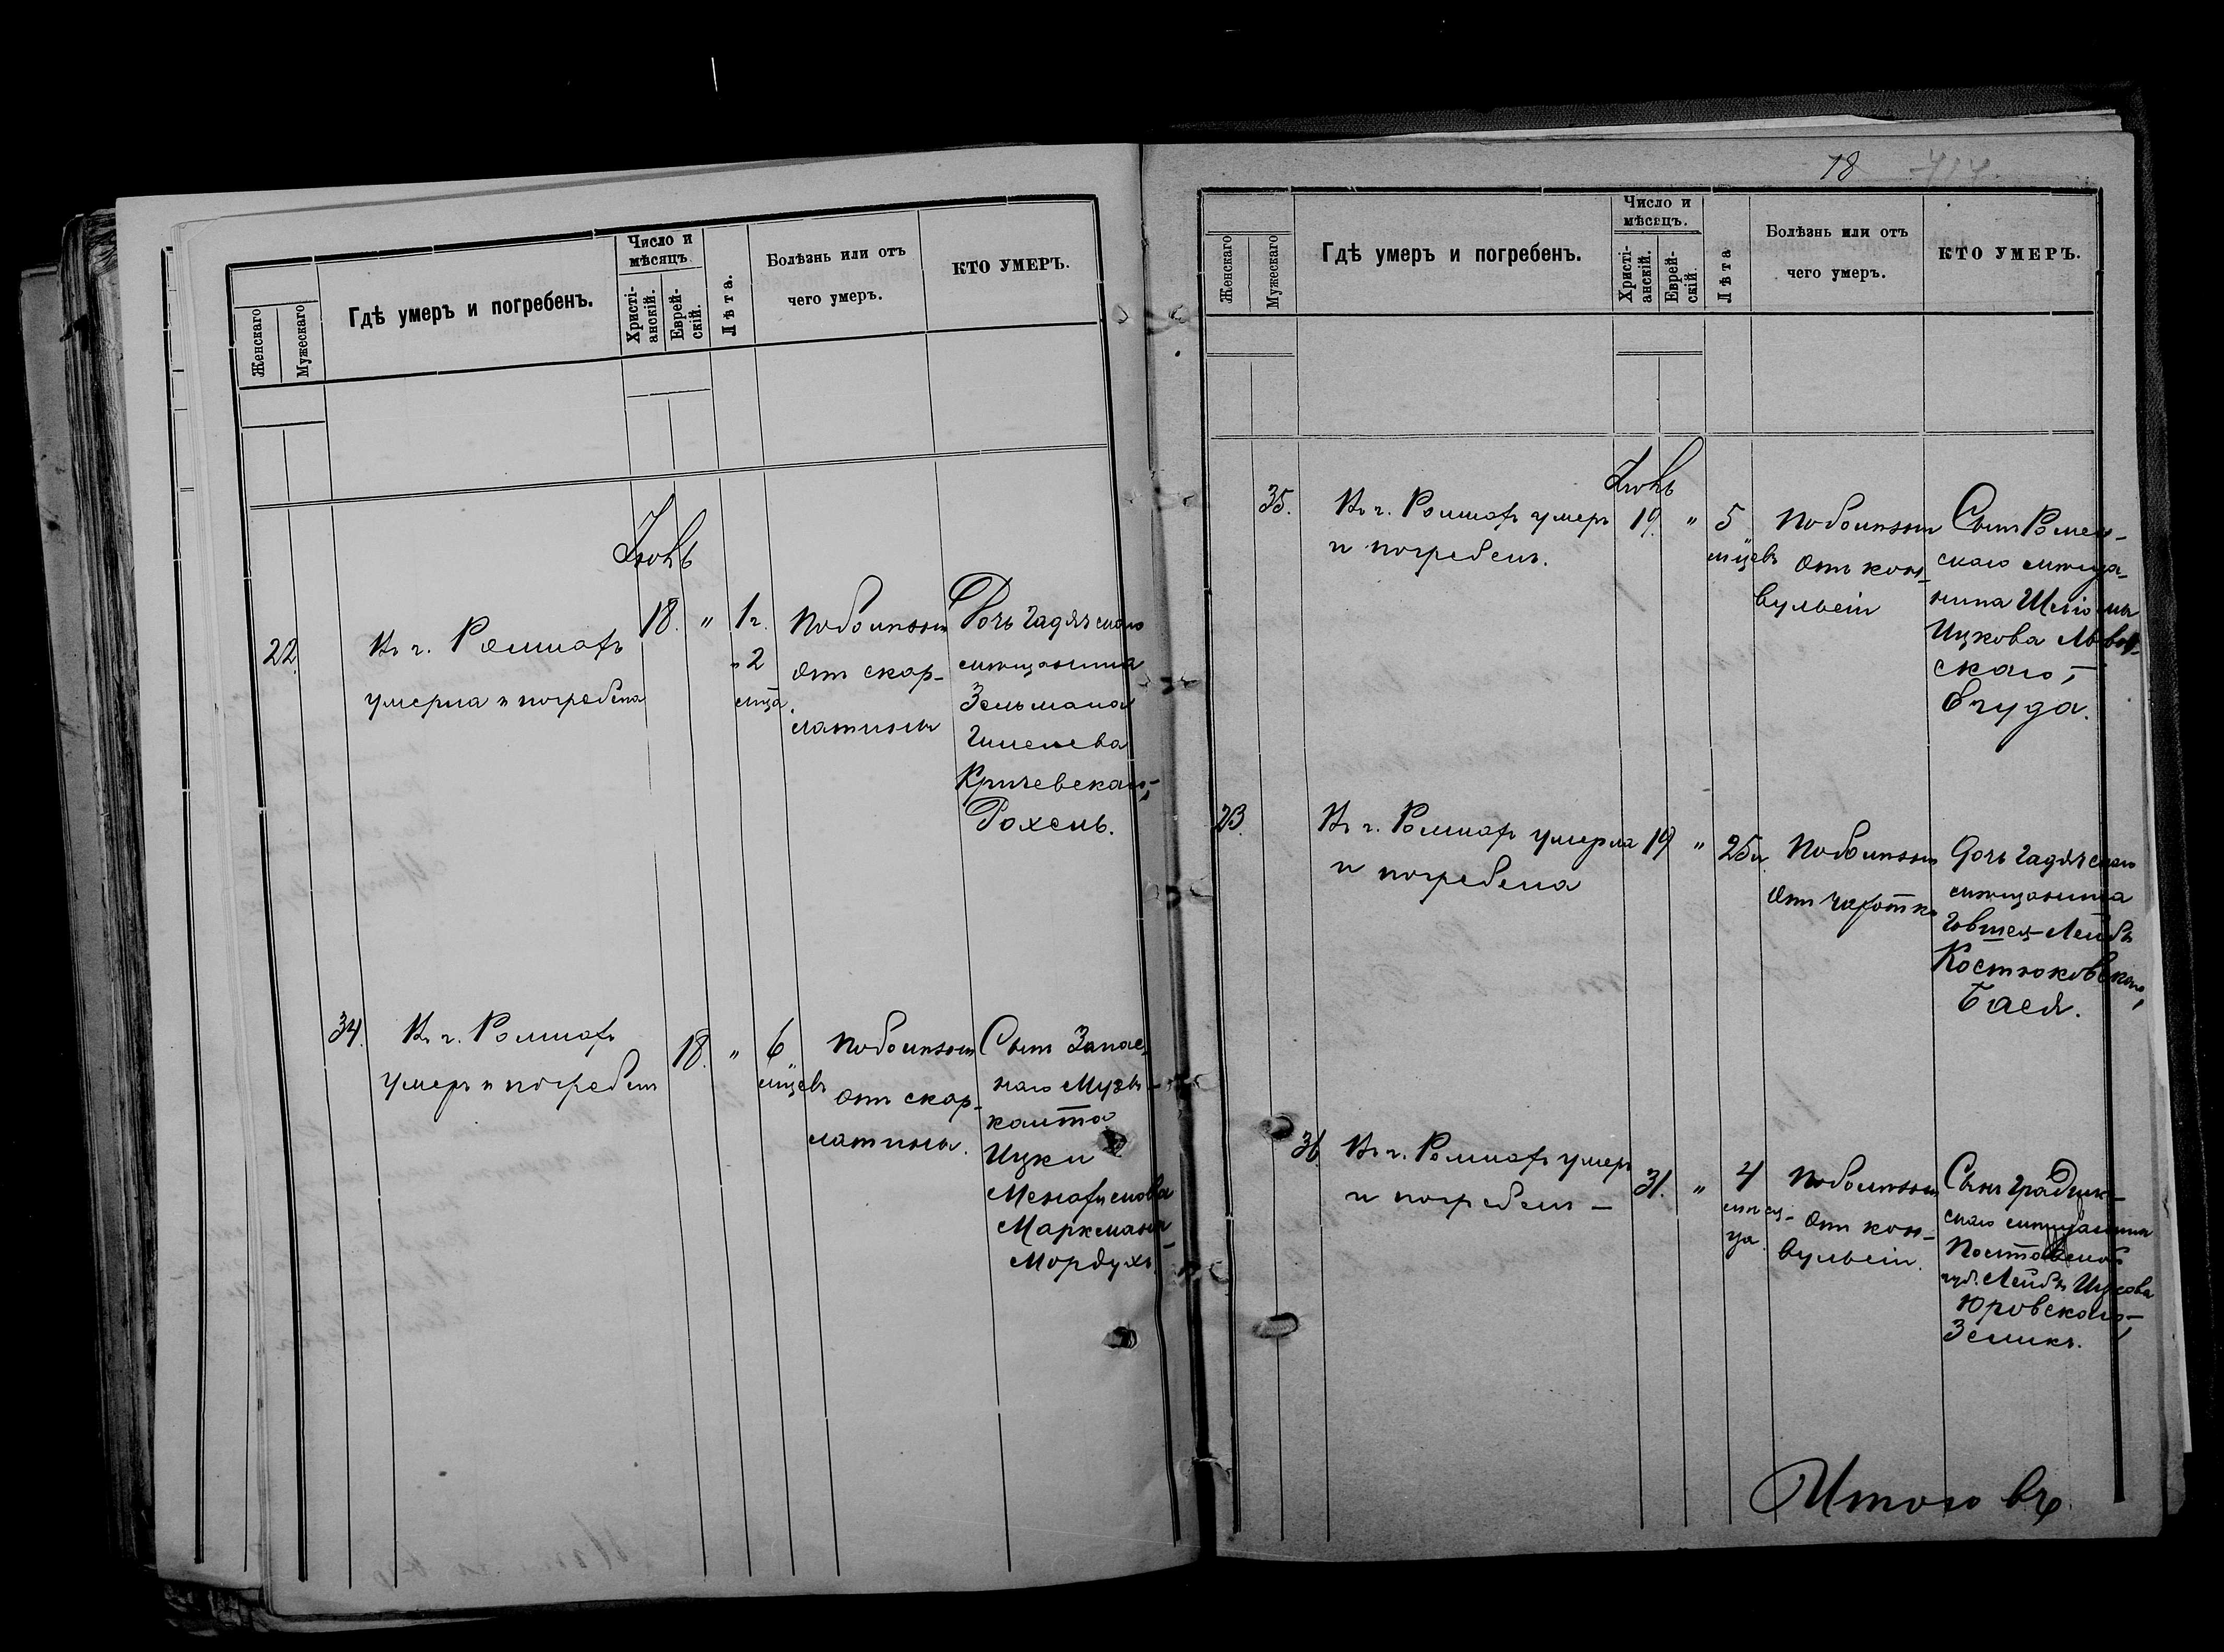 Женскаго
Мужескаго
Гдѣ умеръ и погребенъ.
Число и
мѣсяцъ
Христі-
анскій.
Еврей-
скій.
Лѣта.
Болѣзнь или отъ
чего умеръ.
КТО УМЕРЪ.
22
Въ г. Ромнахъ
умерла и погребена
Іюль
18. " 1 г.
" 2
мца
по болѣзни
отъ скар-
латины
Дочь гадячскаго
мѣщанина
Зельмана
Кричевскаго,-
Рохель.
34.
Въ г. Ромнахъ
умеръ и погребенъ
18. " 6
мцевъ
по болѣзни
отъ скар-
латины.
Сынъ Запас-
наго Музы-
канта
Ицки
Маркмана
Мордухъ.
18
Женскаго
Мужескаго
Гдѣ умеръ и погребенъ.
Число и
мѣсяцъ.
Христі-
анскій.
Еврей-
скій.
Лѣта
Болѣзнь или отъ
чего умеръ.
КТО УМЕРЪ.
35.
Въ г. Ромнахъ умеръ
и погребенъ.
Іюль
19. " 5
мцевъ
по болѣзни
отъ кон-
вульсіи
Сынъ Ромен-
скаго мѣща-
нина Шліомы
Ицкова Львов-
скаго,-
23.
Въ г. Ромнахъ умерла
и погребена
19 " 25 л.
по болѣзни
отъ чахотки
Дочь гадячскаго
мѣщанина
Лейбы
Костюковскаго,
Бася.
36.
Въ г. Ромнахъ умеръ
и погребенъ -
31. " 4
мѣся-
ца
по болѣзни
отъ кон-
вульсіи.
Сынъ Градиж-
скаго мѣщанина
Полтавской
губ. Лейбы Ицкова
Юровскаго,-
Зеликъ.
Итого въ